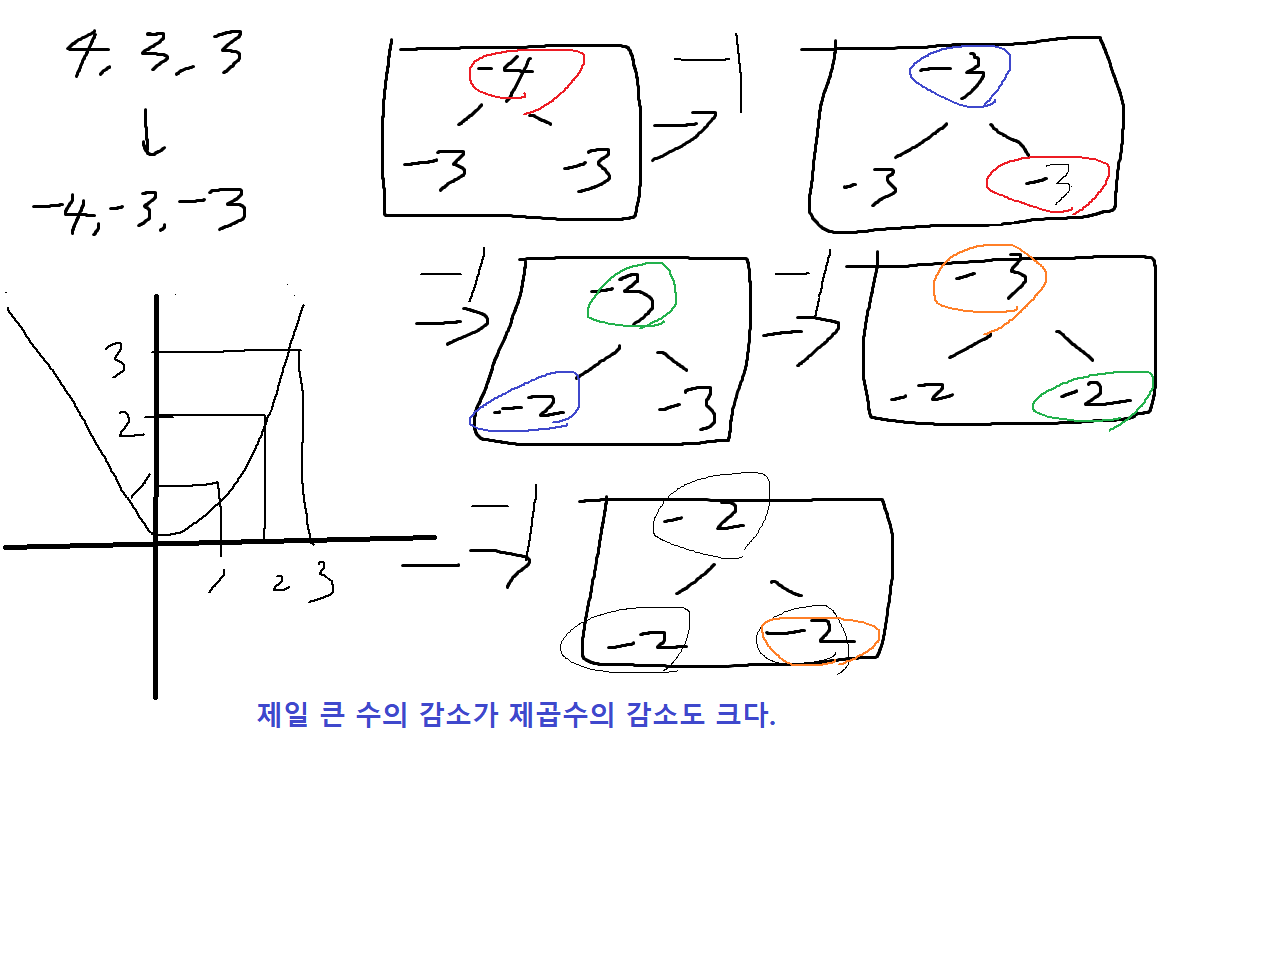 4, 3, 3
-4, -3, -3
-4
-3 -3
-1
-3
-3 -3
-1
-3
-2 -3
-1
-3
-2 -2
-1
-2
-2 -2
3
2
1
1 2 3
제일 큰 수의 감소가 제곱수의 감소도 크다.